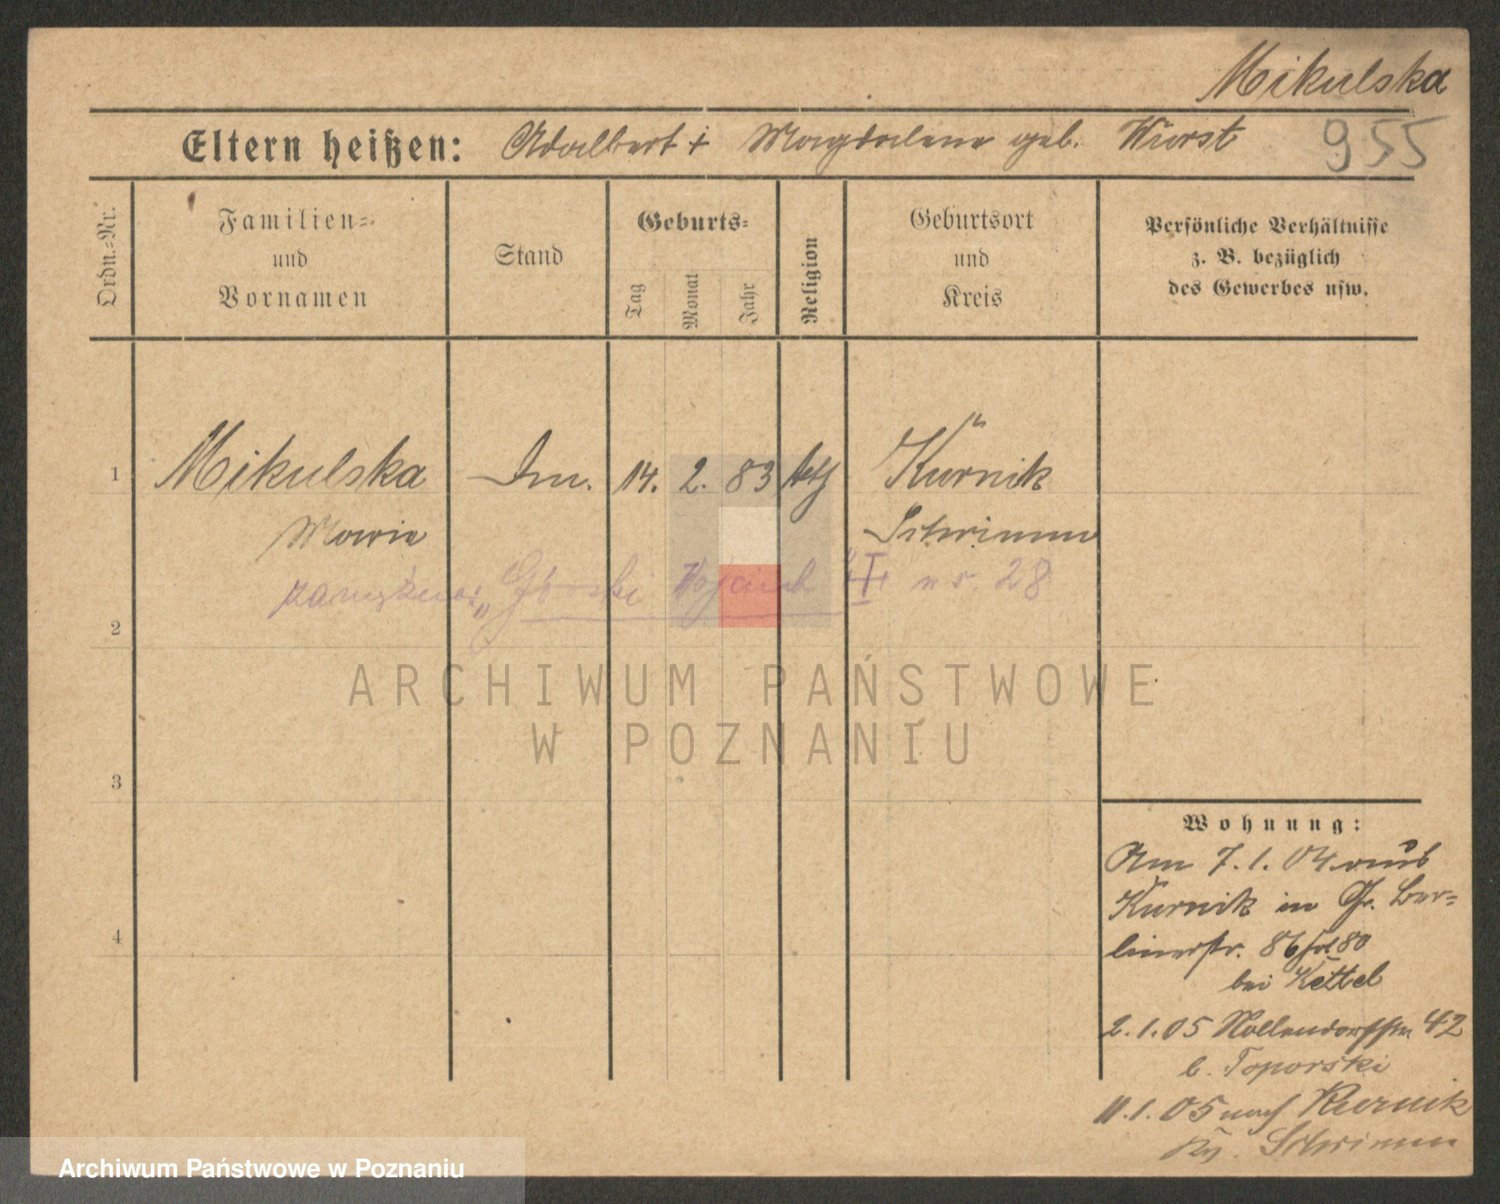 Mikulska
955
Eltern heißen: Adalbert + Magdalena geb. Wurst
Ordn.-Nr.
Familien-
und
Vornamen
Stand
Geburts-
Tag
Monat
Jahr
Religion
Geburtsort
und
Kreis
Persönliche Verhältnisse
z. B. bezüglich
des Gewerbes usw.
1 Mikulska 14. 2. 83 kath Kurnik
Marie Schrimm
zamężna: „Górski Wojciech" I nr. 28
2
3
4
Wohnung:
Am 7.1.04 aus
Kurnik in Gr. Ber-
linerstr. 86
bei Kettel
2.1.05 Nollendorfstr. 42
b. Toporski
11.1.05 nach Kurnik
Schrimm
ARCHIWUM PAŃSTWOWE
W POZNANIU
Archiwum Państwowe w Poznaniu